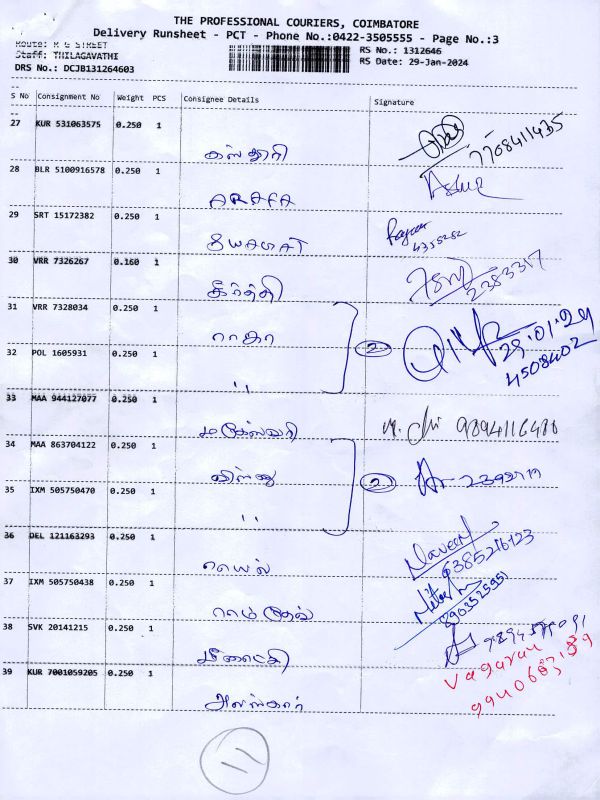 THE PROFESSIONAL COURIERS, COIMBATORE
Delivery Runsheet - PCT - Phone No.:0422-3505555 - Page No.:3
Route: R G STREET
Staff: THILAGAVATHI
DRS No.: DCJB131264603
RS No.: 1312646
RS Date: 29-Jan-2024
S No Consignment No Weight PCS Consignee Details Signature
27 KUR 531063575 0.250 1
கஸ்தூரி 7708411435
28 BLR 5100916578 0.250 1
ARAFA
29 SRT 15172382 0.250 1
SWAGAT
30 VRR 7326267 0.160 1
கீர்த்தி 2383317
31 VRR 7328034 0.250 1
ராகா
2 29.01.24
32 POL 1605931 0.250 1
4508402
"
33 MAA 944127077 0.250 1
மகேஸ்வரி
34 MAA 863704122 0.250 1
விஸ்னு
2
35 IXM 505750470 0.250 1
"
36 DEL 121163293 0.250 1
Naveen
37 IXM 505750438 0.250 1
38 SVK 20141215 0.250 1
மீனாட்சி
39 KUR 7001059205 0.250 1
அலங்கார்
11